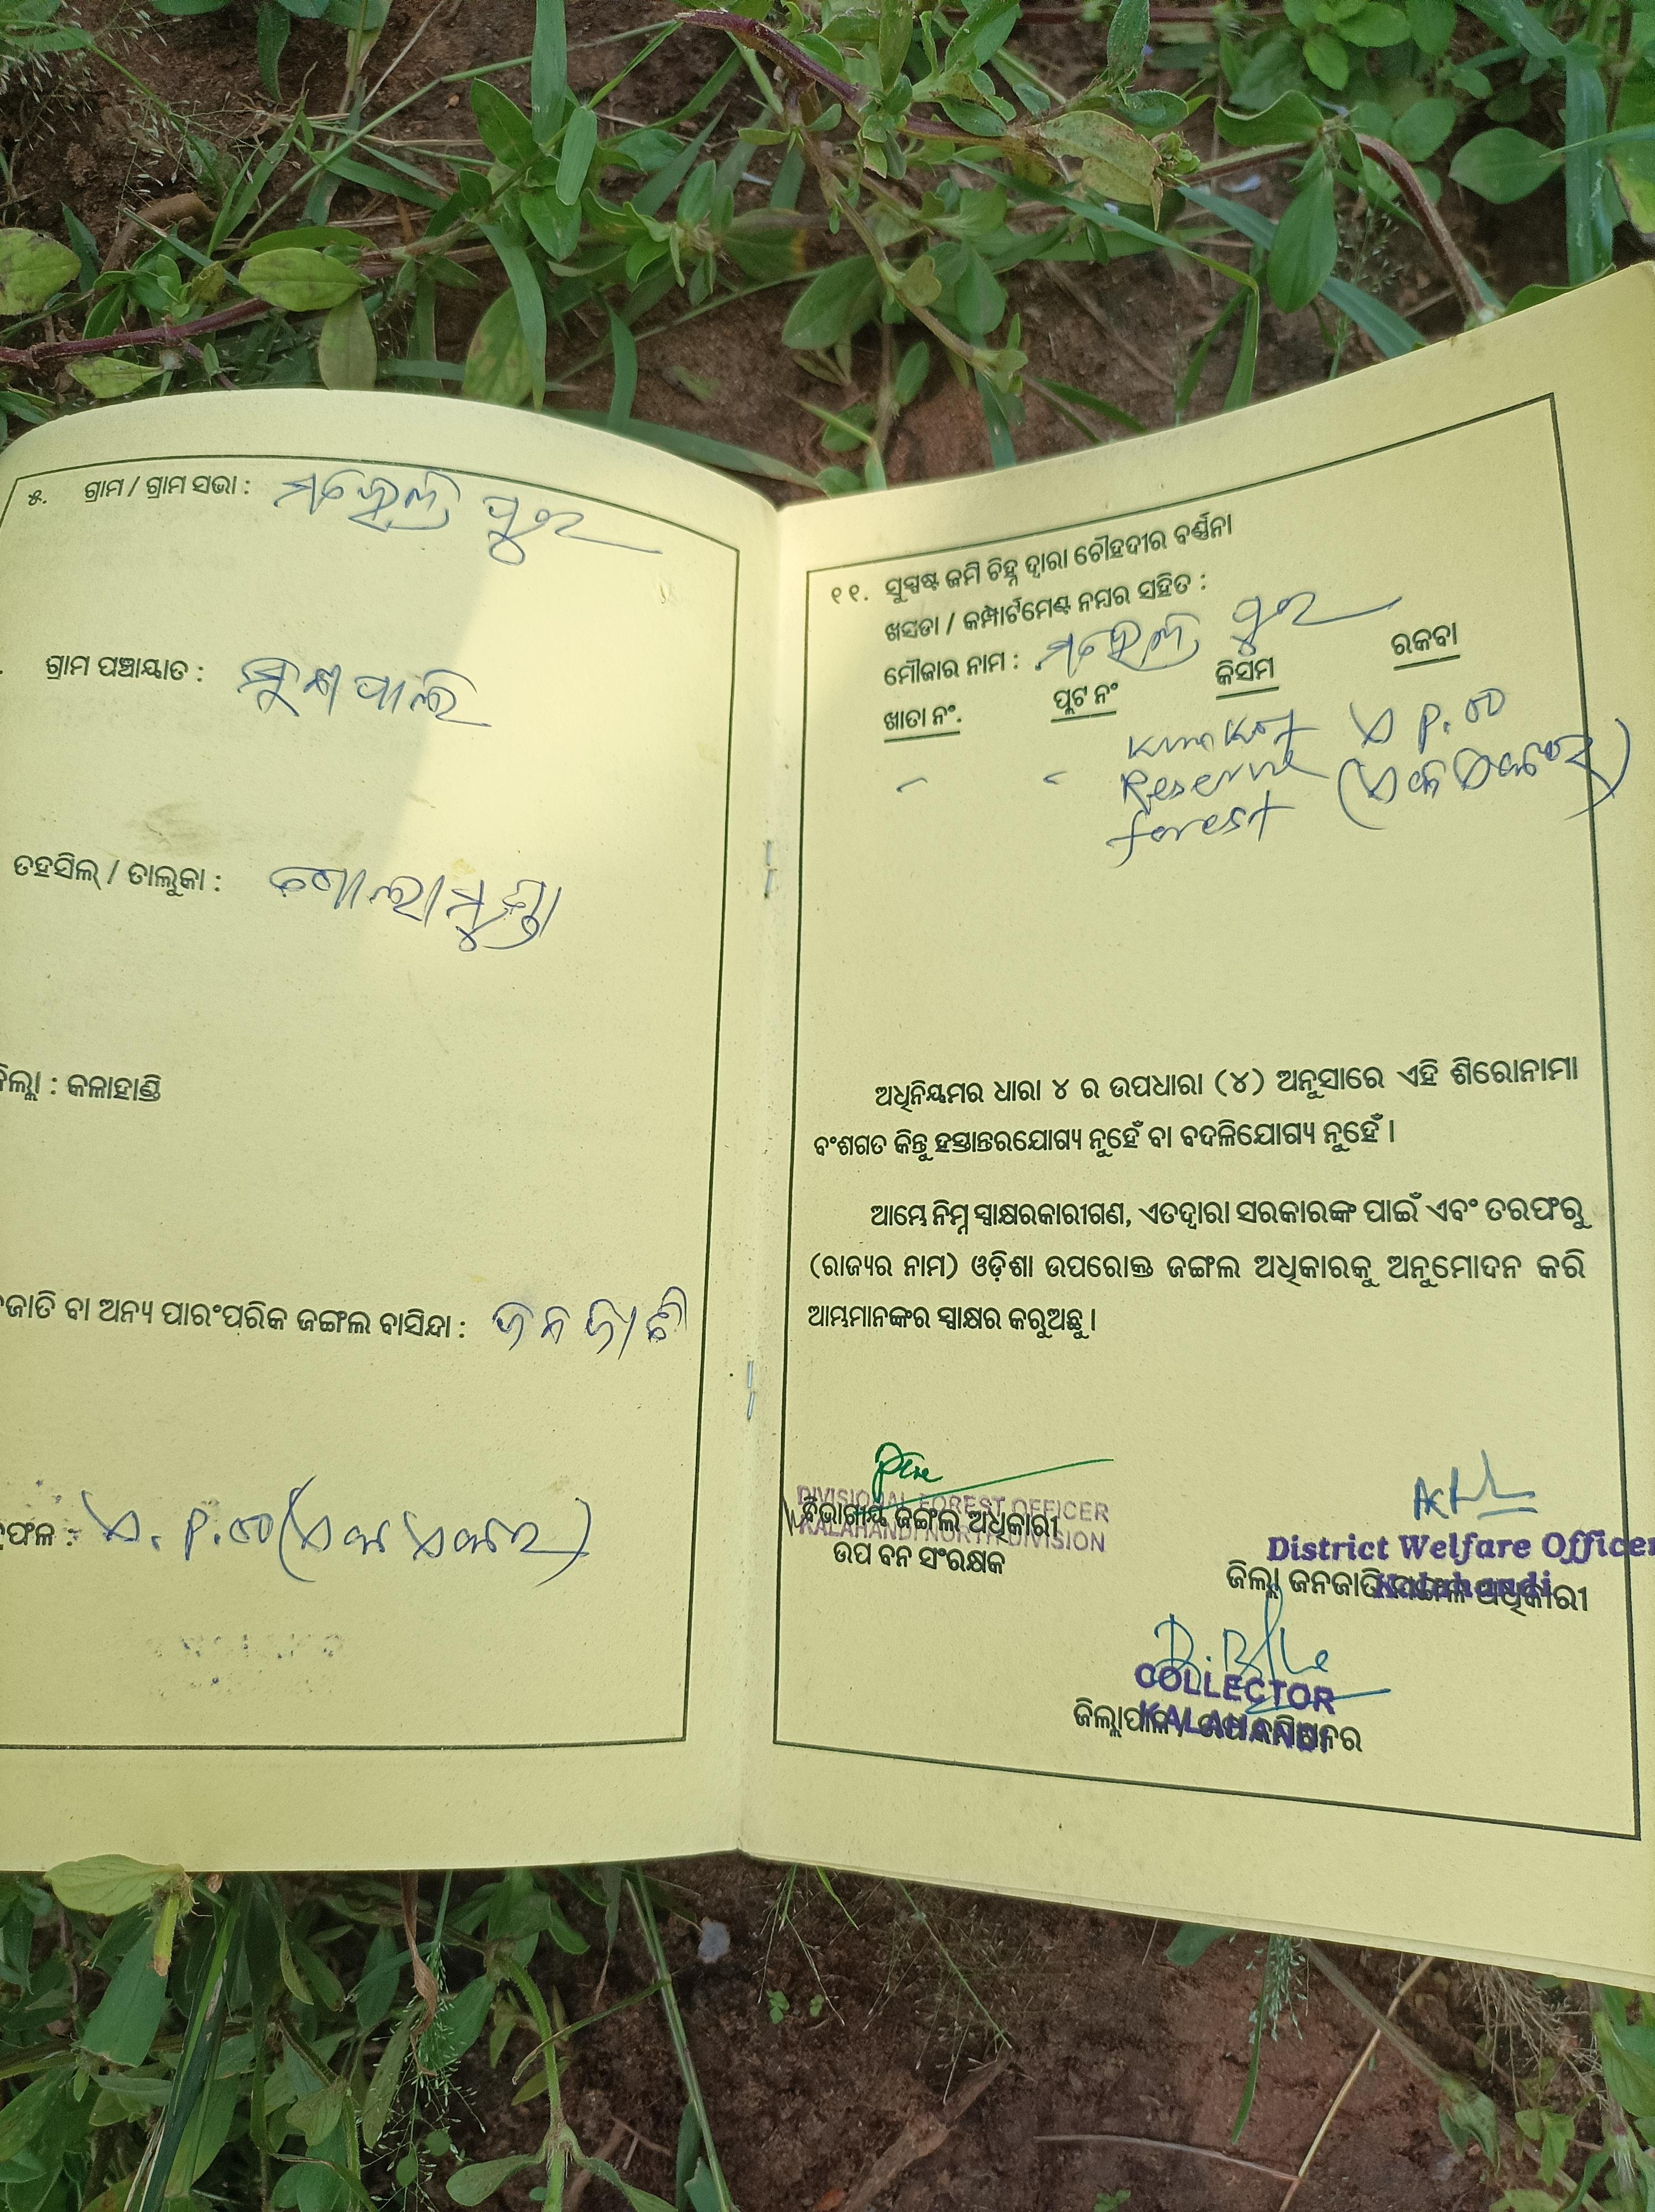 ୫. ଗ୍ରାମ / ଗ୍ରାମ ସଭା : ମହେନ୍ଦ୍ର ପୁର
ଗ୍ରାମ ପଞ୍ଚାୟାତ :
ତହସିଲ୍ / ତାଲୁକା : ଗୋଲାମୁଣ୍ଡା
ଜିଲ୍ଲା : କଳାହାଣ୍ଡି
ଜାତି ବା ଅନ୍ୟ ପାରଂପରିକ ଜଙ୍ଗଲ ବାସିନ୍ଦା : ଜନଜାତି
ଫଳ :
୧୧. ସୁସ୍ପଷ୍ଟ ଜମି ଚିହ୍ନ ଦ୍ୱାରା ଚୌହଦୀର ବର୍ଣ୍ଣନା
ଖସଡା / କମ୍ପାର୍ଟମେଣ୍ଟ ନମ୍ବର ସହିତ :
ମୌଜାର ନାମ : ମହେନ୍ଦ୍ର ପୁର
ଖାତା ନଂ. ପ୍ଲଟ ନଂ କିସମ ରକବା
Reserve
forest
ଅଧିନିୟମର ଧାରା ୪ ର ଉପଧାରା (୪) ଅନୁସାରେ ଏହି ଶିରୋନାମା
ବଂଶଗତ କିନ୍ତୁ ହସ୍ତାନ୍ତରଯୋଗ୍ୟ ନୁହେଁ ବା ବଦଳିଯୋଗ୍ୟ ନୁହେଁ ।
ଆମ୍ଭେ ନିମ୍ନ ସ୍ୱାକ୍ଷରକାରୀଗଣ, ଏତଦ୍ୱାରା ସରକାରଙ୍କ ପାଇଁ ଏବଂ ତରଫରୁ
(ରାଜ୍ୟର ନାମ) ଓଡ଼ିଶା ଉପରୋକ୍ତ ଜଙ୍ଗଲ ଅଧିକାରକୁ ଅନୁମୋଦନ କରି
ଆମ୍ଭମାନଙ୍କର ସ୍ୱାକ୍ଷର କରୁଅଛୁ ।
DIVISIONAL FOREST OFFICER
ବିଭାଗୀୟ ଜଙ୍ଗଲ ଅଧିକାରୀ
KALAHANDI NORTH DIVISION
ଉପ ବନ ସଂରକ୍ଷକ
District Welfare Officer
Kalahandi
ଜିଲ୍ଲା ଜନଜାତି ମଙ୍ଗଳ ଅଧିକାରୀ
COLLECTOR
KALAHANDI
ଜିଲ୍ଲାପାଳ / ଉପ କମିଶନର